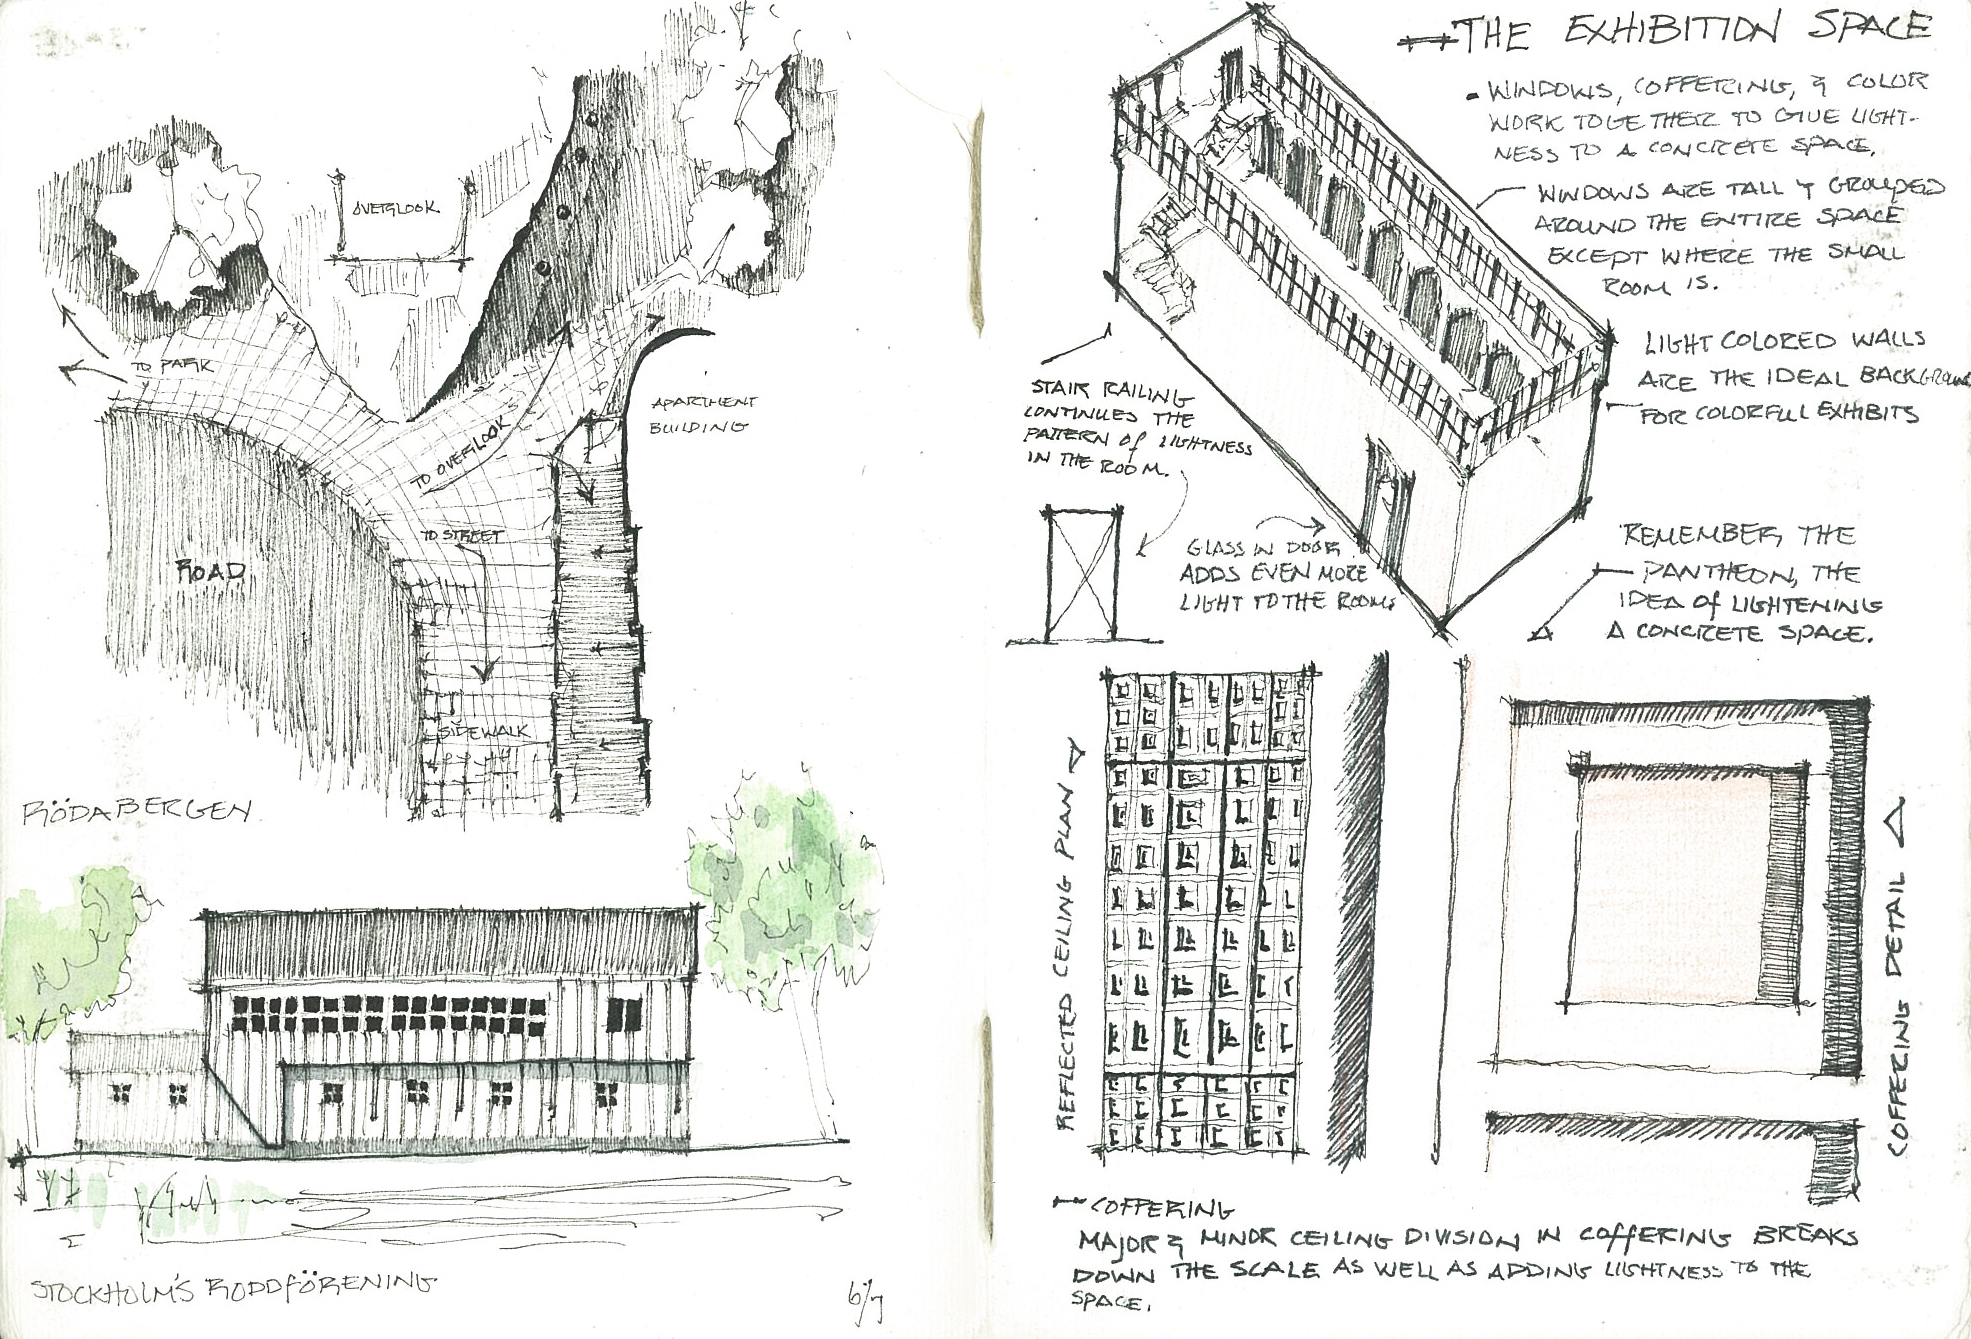 OVERLOOK
TO PARK
APARTMENT
BUILDING
TO OVERLOOK
TO STREET
ROAD
SIDEWALK
RÖDABERGEN
STOCKHOLM'S RODDFÖRENING
6/7
THE EXHIBITION SPACE
• WINDOWS, COFFERING, & COLOR
WORK TOGETHER TO GIVE LIGHT-
NESS TO A CONCRETE SPACE.
WINDOWS ARE TALL & GROUPED
AROUND THE ENTIRE SPACE
EXCEPT WHERE THE SMALL
ROOM IS.
LIGHT COLORED WALLS
ARE THE IDEAL BACKGROUND
FOR COLORFUL EXHIBITS
STAIR RAILING
CONTINUES THE
PATTERN OF LIGHTNESS
IN THE ROOM.
GLASS IN DOOR
ADDS EVEN MORE
LIGHT TO THE ROOM.
REMEMBER THE
PANTHEON, THE
IDEA OF LIGHTENING
A CONCRETE SPACE.
REFLECTED CEILING PLAN
COFFERING DETAIL
COFFERING
MAJOR & MINOR CEILING DIVISION IN COFFERING BREAKS
DOWN THE SCALE AS WELL AS ADDING LIGHTNESS TO THE
SPACE.